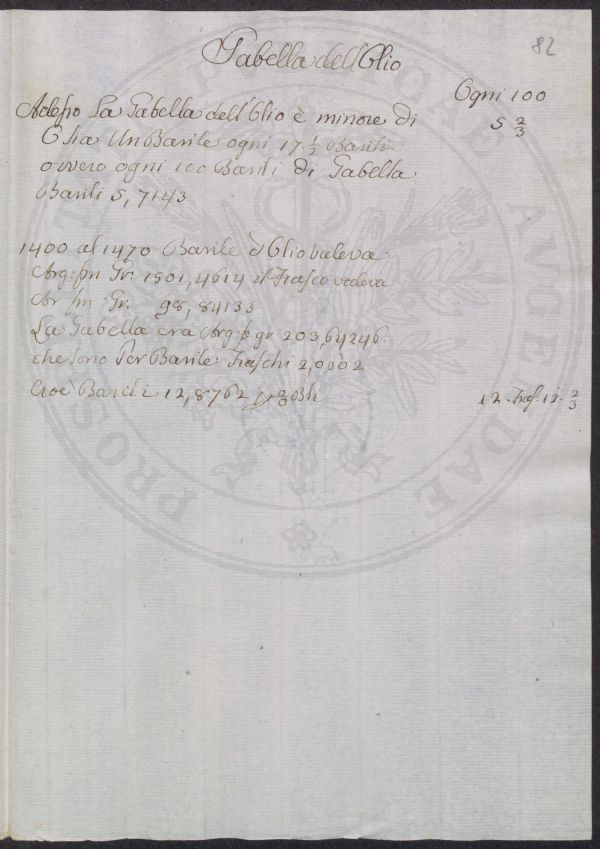 82
Gabella dell'Olio
Ogni 100
Adesso La Gabella dell'Olio è minore di 5 2/3
Un Barile ogni 17 1/2 Barili
ovvero ogni 100 Barili di Gabella
Barili 5,7143
1400 al 1470 Barile d'Olio valeva
Arg: fin Gr. 1501,4614 il Fiasco vedeva
Ar fin Gr. 98,84133
La Gabella era Arg: f gr 20364246.
che sono Per Barile Fiaschi 2,0602
Cioè Barili 12,8762 12. Fias. 12. 2/3
PROSPERITATI PUBLICAE AUGENDAE